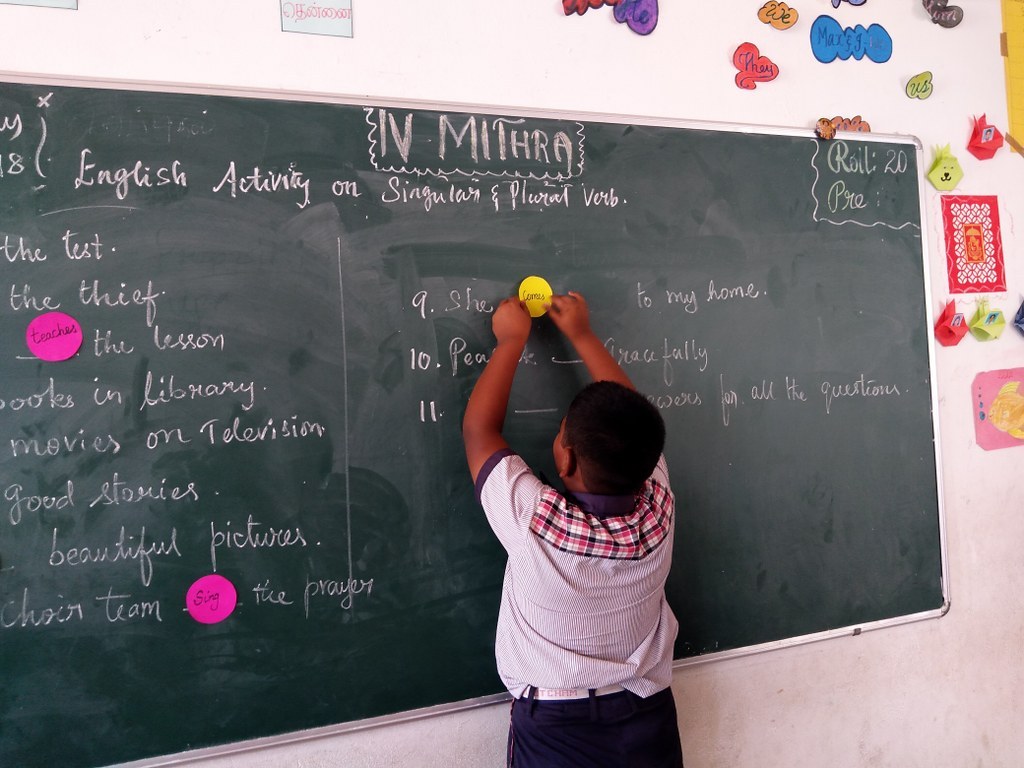 தென்னை
We
Max & J
They
us
IV MITHRA
18
Roll: 20
Pre
English Activity on Singular & Plural Verb.
the test.
the thief.
teaches the lesson
books in library.
movies on Television
good stories.
beautiful pictures.
Choir team Sing the prayer
9. She comes to my home.
10. Gracefully
11. for all the questions.